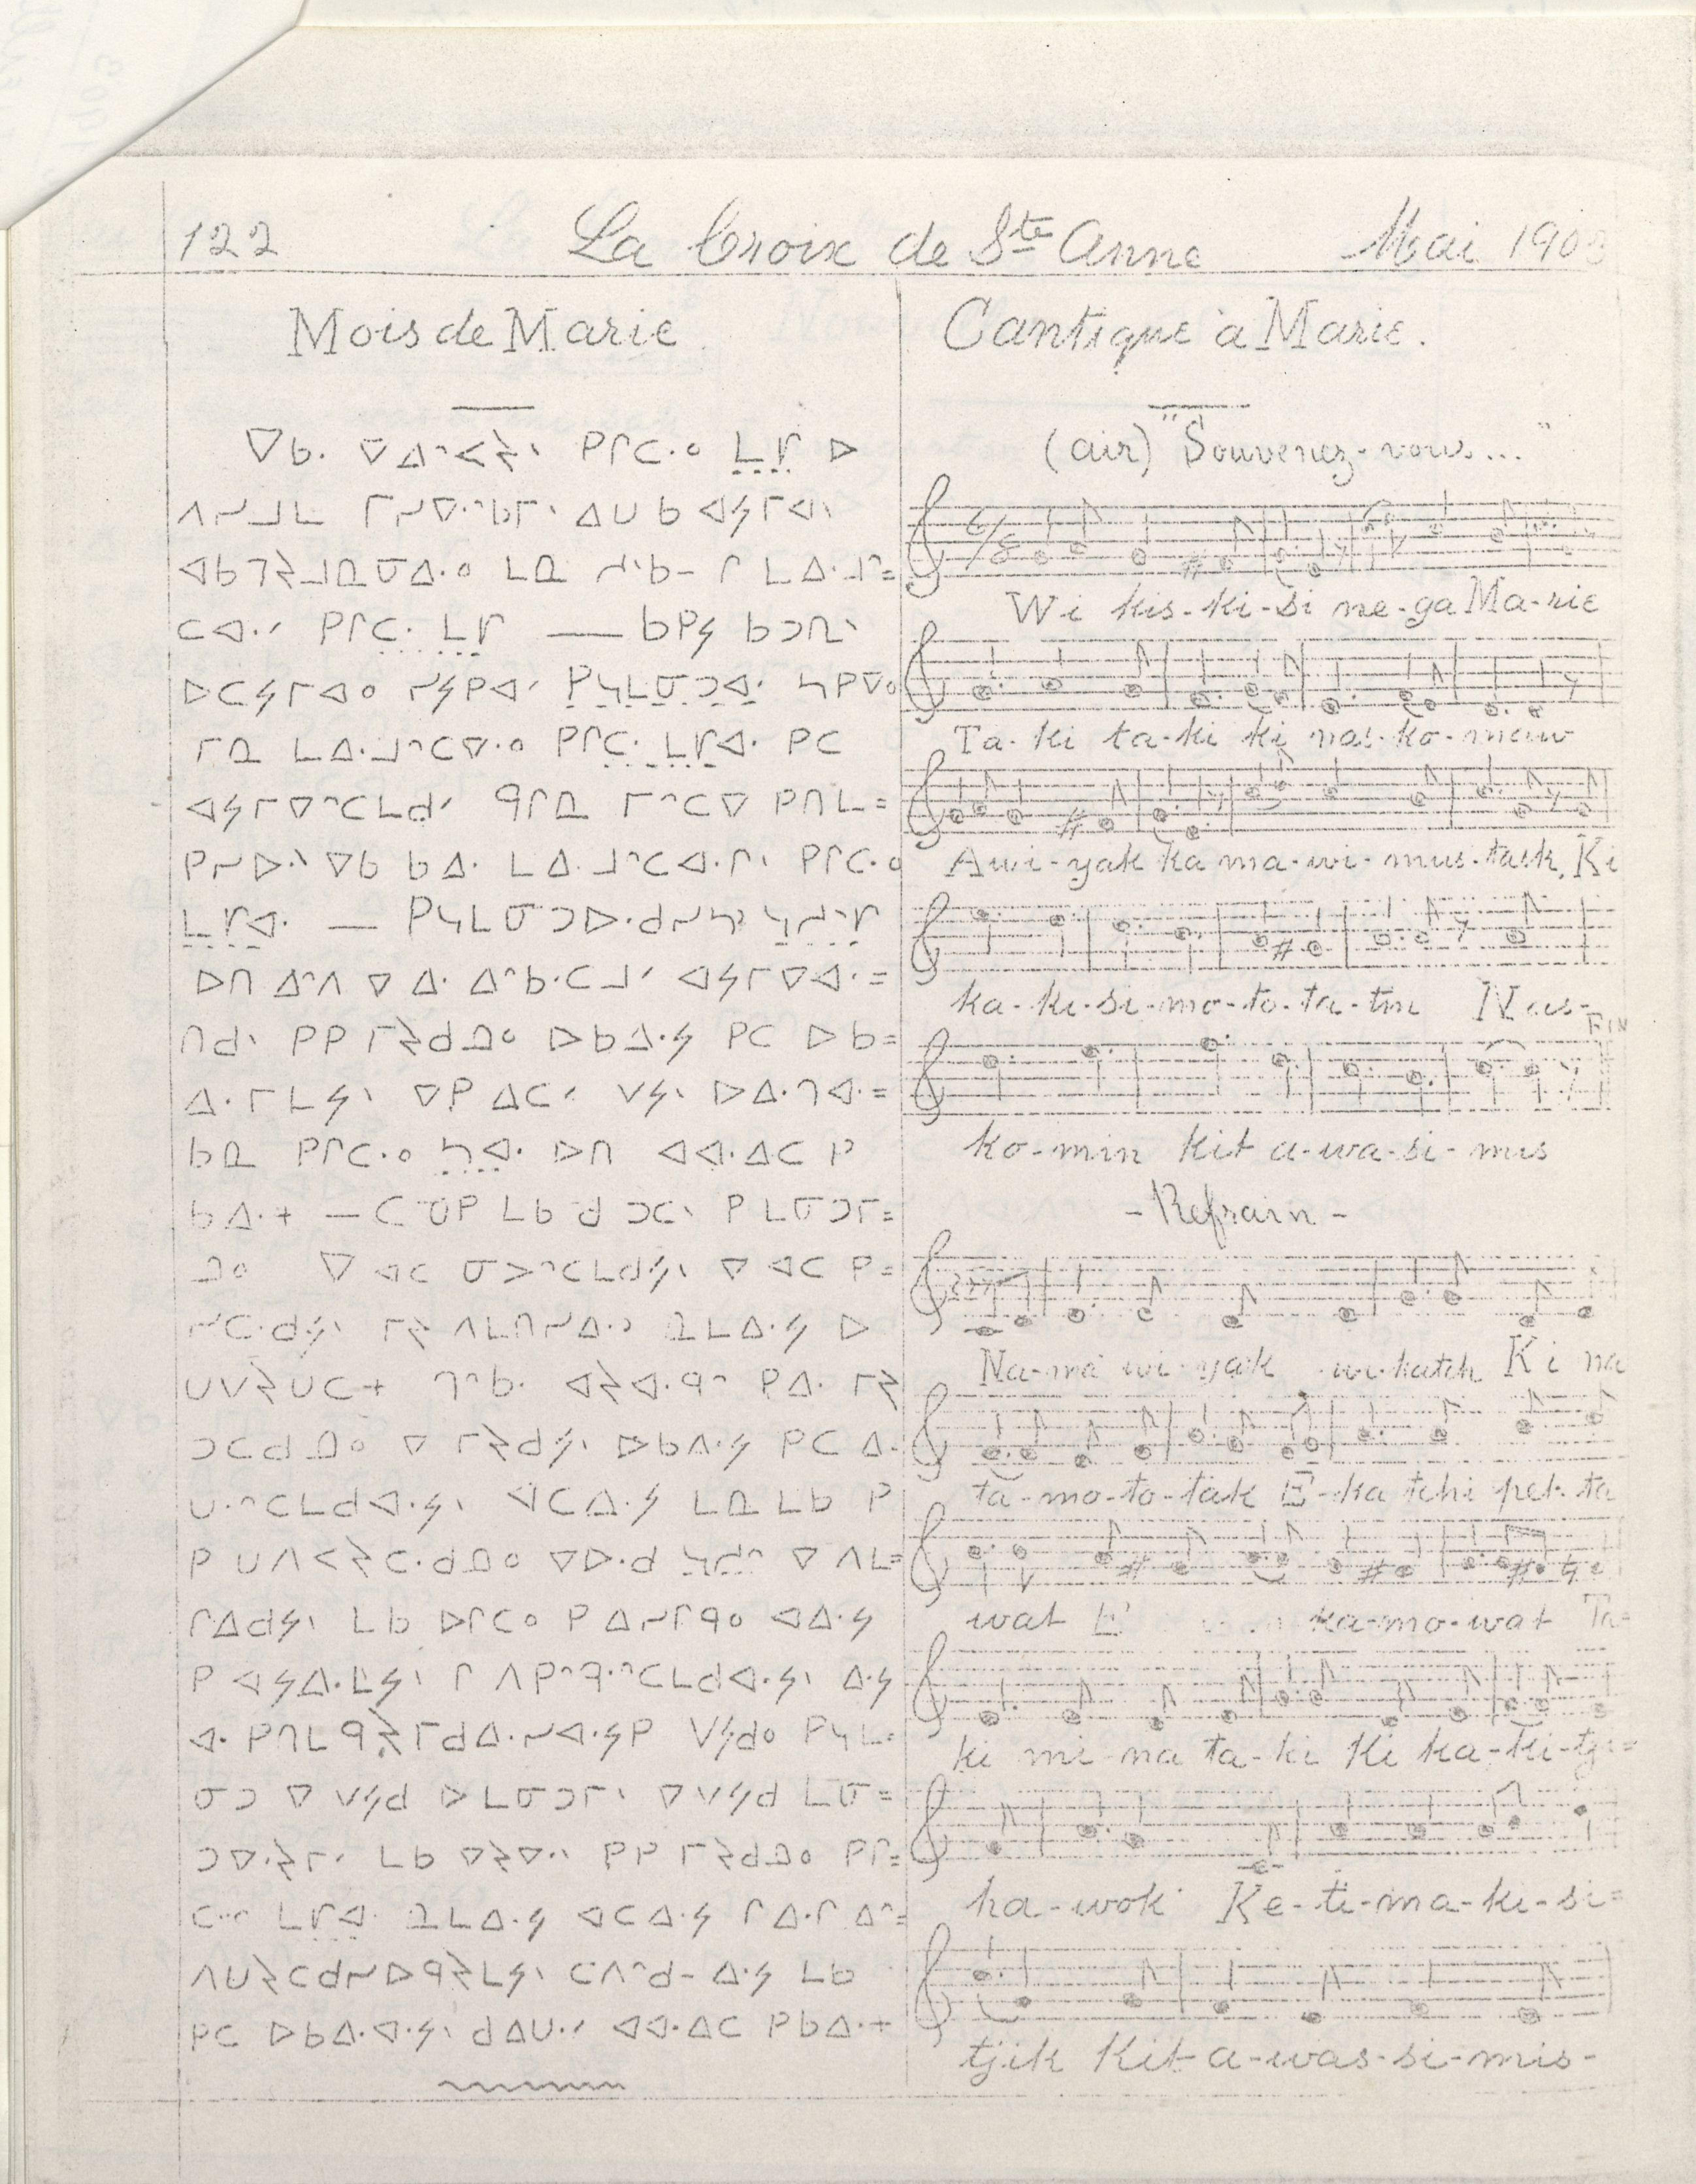 122 La Croix de Ste Anne Mai 190
Mois de Marie
ᐁᑲᐧ ᐁᐃᐢᐸᔨᐠ ᑭᒋᑕᐧᐤ ᒪᓕ ᐅ
ᐱᓯᒧᒪ ᒥᓯᐁᐧᐢᑲᒥᐠ ᐃᑌ ᑲ ᐊᔭᒥᐊᐠ
ᒪᓇ ᒋ ᒪᐃᐧᒧᐢ=
ᑕᐊᐧᐟ ᑭᒋᑕᐧ ᒪᓕ — ᑲᑭᔭ ᑲᑐᑎᐠ
ᐅᑕᔭᒥᐊᐤ ᓯᔭᑭᐊᐟ ᑭᓴᒪᓂᑐᐊᐧ ᓴᑭᐁᐤ
ᒥᓇ ᒪᐃᐧᒧᐢᑕᐁᐧᐤ ᑭᒋᑕᐧ ᒪᓕᐊᐧ ᑭᑕ
ᐊᔭᒥᐁᐢᑕᒪᑯᐟ ᑫᒋᓇ ᒥᐢᑕᐁ ᑭᑎᒪ=
ᑭᓯᐅᐧᐠ ᐁᑲ ᑲᐃᐧ ᒪᐃᐧᒧᐢᑕᐊᐧᒋᐠ ᑭᒋᑕᐧᐤ
ᒪᓕᐊᐧ — ᑭᓴᒪᓂᑐᐅᐧᑯᓯᓴᐣ ᓴᓱᐢᓕ
ᐅᑎ ᐃᐢᐱ ᐁ ᐃᐧ ᐃᐢᑲᐧᑕᒧᐟ ᐊᔭᒥᐁᐊᐧ=
ᑎᑯᐠ ᑭᑭ ᒥᔨᑯᓇᐤ ᐅᑲᐃᐧᔭ ᑭᑕ ᐅᑲ=
ᐃᐧᒥᒪᔭᐠ ᐁᑭ ᐃᑕᐟ ᐯᔭᐠ ᐅᐃᐧᒉᐊᐧ=
ᑲᓇ ᑭᒋᑕᐧᐤ ᓴᐊᐧ ᐅᑎ ᐊᐊᐧᐃᑕ ᑭ
ᑲᐃᐧᕀ — ᑕ ᑌᑭ ᒪᑲ ᑯ ᑐᑕᐠ ᑭ ᒪᓂᑐᒥ=
ᓇᐤ ᐁ ᐊᑕ ᓂᐳᐢᑕᒪᑯᔭᐠ ᐁ ᐊᑕ ᑭ=
ᓯᑕᐧᑯᔭᐠ ᒥᔨ ᐱᒪᑎᓯᐃᐧᐣ ᓇᒪᐃᐧᔭ ᐅ
ᑌᐯᔨᑌᑕᕀ ᒉᐢᑲᐧ ᐊᔨᐊᐧᑫᐢ ᑭᐃᐧ ᒥᔨ
ᑐᑕᑯᓇᐤ ᐁ ᒥᔨᑯᔭᐠ ᐅᑲᐃᐧᔭ ᑭᑕ ᐃ
ᑌᐧᐢᑕᒪᑯᐊᐧᔭᐠ ᐊᑕᐃᐧᔭ ᒪᓇ ᒪᑲ ᑭ
ᑭ ᑌᐱᐸᔨᑕᐧᑯᓇᐤ ᐁᐅᐧᑯ ᓴᓱᐢ ᐁ ᐱᒪ=
ᒋᐃᑯᔭᐠ ᒪᑲ ᐅᒋᑕᐤ ᑭ ᐃᓯᒋᑫᐤ ᐊᐃᐧᔭ
ᑭ ᐊᔭᐃᐧᒪᔭᐠ ᒋ ᐱᑭᐢᑫᐧᐢᑕᒪᑯᐊᐧᔭᐠ ᐃᐧᔭ
ᐊᐧ ᑭᑎᒪᑫᔨᒥᑯᐃᐧᓯᐊᐧᔭᑭ ᐯᔭᑯᐤ ᑭᓴᒪ=
ᓂᑐ ᐁ ᐯᔭᑯ ᐅᒪᓂᑐᒥᐠ ᐁ ᐯᔭᑯ ᒪᓂ=
ᑐᐁᐧᔨᒥᐟ ᒪᑲ ᑭᑭ ᒥᔨᑯᓇᐤ ᑭᒋ=
ᒪᓕᐊᐧ ᓇᒪᐃᐧᔭ ᐊᑕᐃᐧᔭ ᒋ ᐃᐧᒋ ᐃᐢ=
ᐱᑌᔨᑕᑯᓯᐅᑫᔨᒪᔭᐠ ᑕᐱᐢᑯᐨ ᐃᐧᔭ ᒪᑲ
ᑭᑕ ᐅᑲᐃᐧᐊᐧᔭᐠ ᑯᐃᑌᐧᐟ ᐊᐊᐧᐃᑕ ᑭᑲᐃᐧᕀ
Cantique à Marie.
(air) "Souvenez-vous..."
Wi kis-ki-si ne-ga Ma-rie
Ta-ki ta-ki ki nas-ko-maw
Awi-yak ka ma-wi-mus-task, Ki
ka-ki-si-mo-to-ta-tin Nas-
FIN
ko-min Kit a-wa-si-mis
- Refrain -
Na-ma wi-yak wi-katch Ki na
ta-mo-to-tak E-ka tchi pet-ta
wat E ka-mo-wat Ta=
ki mi-na ta-ki Ki ka-ki-tji=
ha-wok Ke-ti-ma-ki-si=
tjik Kit a-was-si-mis-